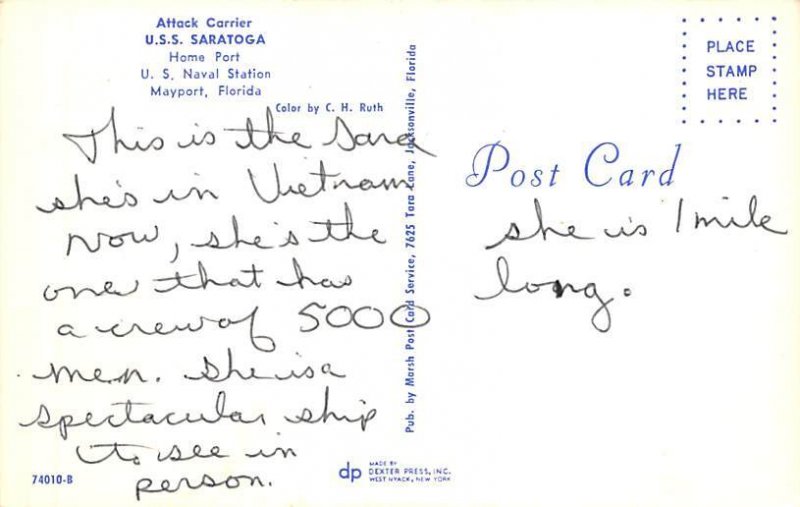 Attack Carrier
U.S.S. SARATOGA
Home Port
U. S. Naval Station
Mayport, Florida
Color by C. H. Ruth
This is the Sara
she's in Vietnam
now, she's the
one that has
a crew of 5000
men. She is a
spectacular ship
to see in
person.
74010-B
Pub. by Marsh Post Card Service, 7625 Tara Lane, Jacksonville, Florida
dp MADE BY
DEXTER PRESS, INC.
WEST NYACK, NEW YORK
PLACE
STAMP
HERE
Post Card
she is 1 mile
long.